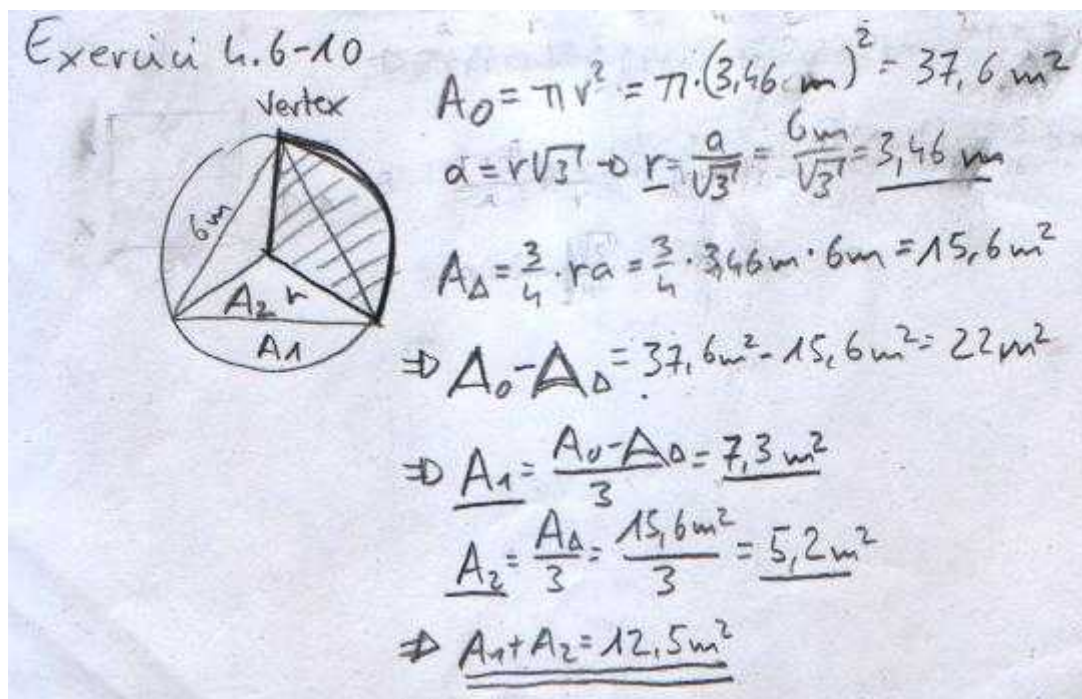 Exercici 4.6-10
Vertex
6m
A₂ r
A1
A₀ = πr² = π·(3,46 m)² = 37,6 m²
a = r√3 → r = a/√3 = 6m/√3 = 3,46 m
A△ = 3/4 · ra = 3/4 · 3,46m · 6m = 15,6m²
⇒ A₀-A△ = 37,6m² - 15,6m² = 22m²
⇒ A₁ = (A₀-A△)/3 = 7,3 m²
A₂ = A△/3 = 15,6m²/3 = 5,2m²
⇒ A₁+A₂ = 12,5m²